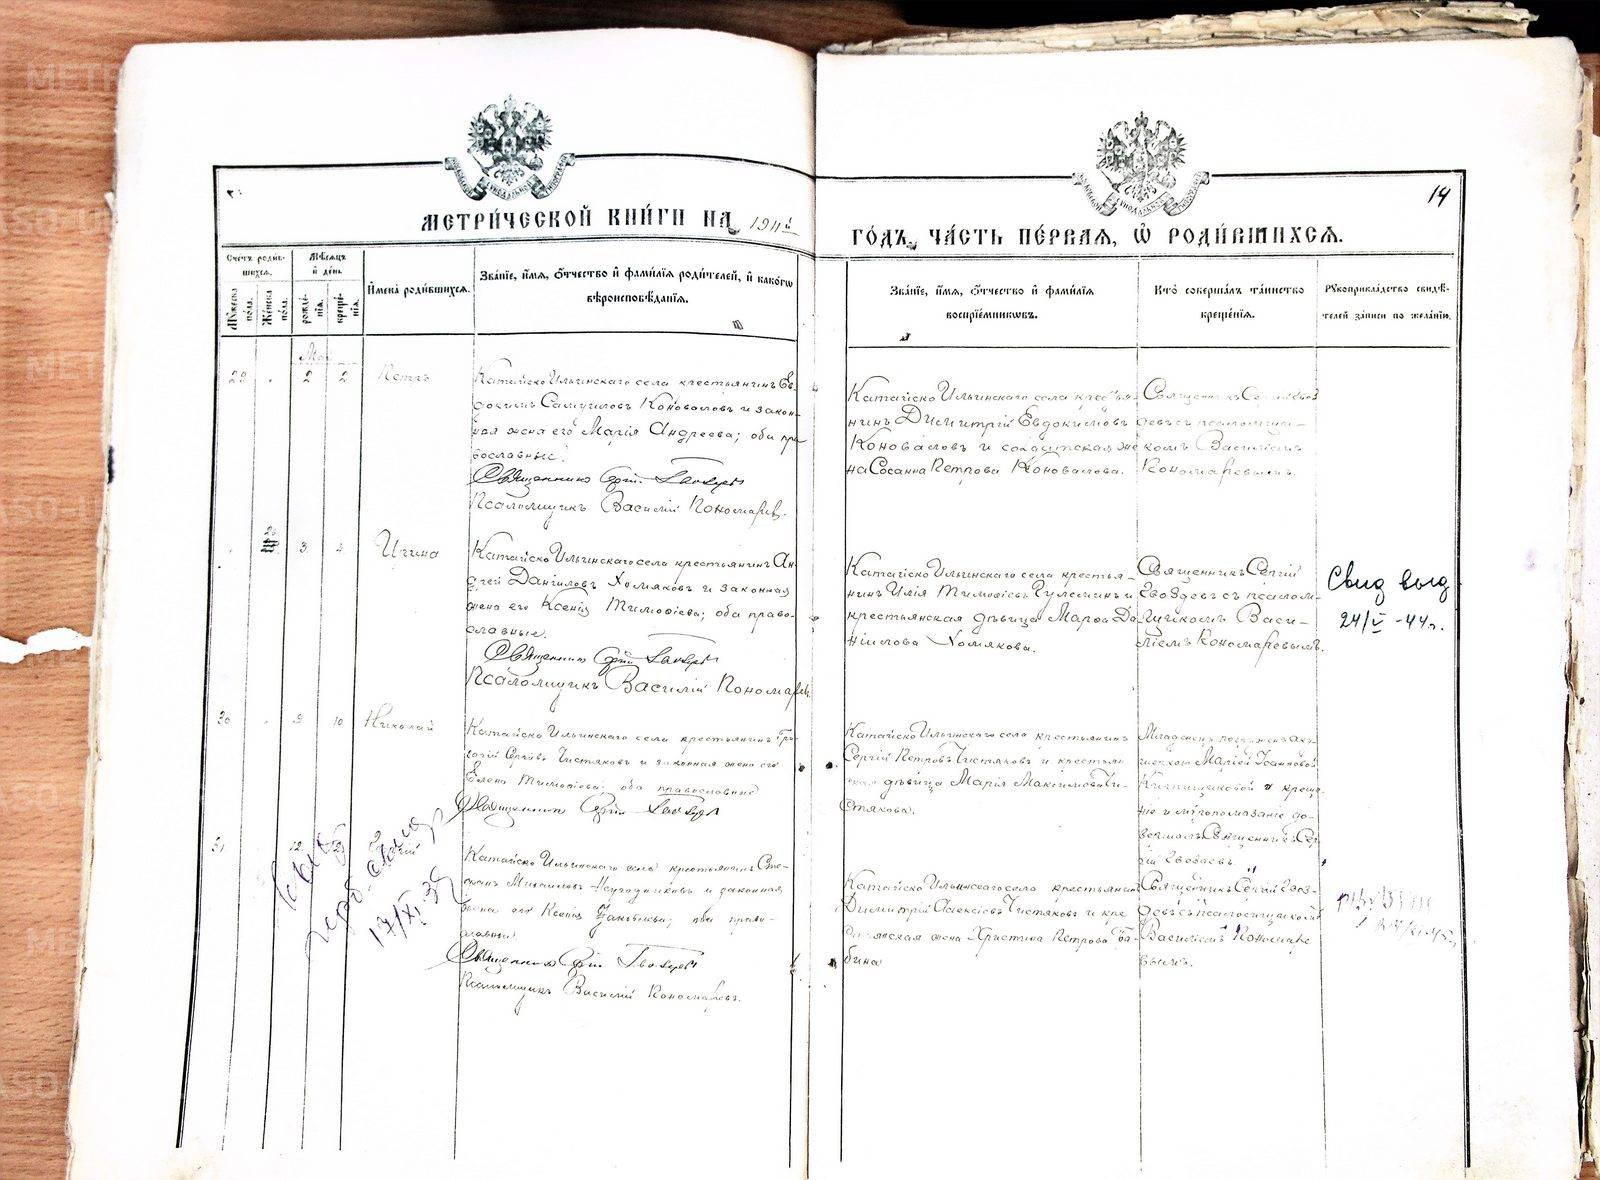 МЕТРИ́ЧЕСКОЙ КНИ́ГИ НА 1911й
ГО́ДЪ, ЧА́СТЬ ПЕ́РВАЯ, Ѡ РОДИ́ВШИХСЯ.
14
Сче́тъ роди́в-
шихся.
Му́жеска по́ла.
Же́нска по́ла.
Мѣ́сяцъ
и де́нь
рожде́-
нія.
креще́-
нія.
И́мена роди́вшихся.
Зва́ніе, и́мя, ѻ́тчество и фами́лія роди́телей, и како́гѡ
вѣроисповѣ́данія.
Зва́ніе, и́мя, ѻ́тчество и фами́лія
воспріе́мниковъ.
Кто̀ соверша́лъ та́инство
креще́нія.
Рꙋкоприкла́дство свидѣ́-
телей за́писи по жела́нію.
29
2
2
Петръ
Катайско Ильинскаго села крестьянинъ Ев-
докимъ Самуиловъ Коноваловъ и закон-
ная жена его Марія Андреева; оба пра
вославные.
Священникъ Сергій Гвоздевъ
Псаломщикъ Василій Пономаревъ.
Катайско Ильинскаго села крестья-
нинъ Димитрій Евдокимовъ
Коноваловъ и солдатская же
на Сосанна Петрова Коновалова.
Священникъ Сергій Гвоз
девъ съ псаломщи-
комъ Василіемъ
Пономаревымъ.
3
4
Ирина
Катайско Ильинскаго села крестьянинъ Ан-
дрей Даниловъ Хомяковъ и законная
жена его Ксенія Тимофіева; оба право-
славные.
Священникъ Сергій Гвоздевъ
Псаломщикъ Василій Пономаревъ
Катайско Ильинскаго села крестья-
нинъ Илія Тимофіевъ и
крестьянская дѣвица Марѳа Да-
ніилова Хомякова.
Священникъ Сергій
Гвоздевъ съ псалом-
щикомъ Васи-
ліемъ Пономаревымъ.
Свид выд
24/V -44г.
30
9
10
Николай
Катайско Ильинскаго села крестьянинъ Гри-
горій Сергіевъ Чистяковъ и законная жена его
Елена Тимофіева; оба православные
Священникъ Сергій Гвоздевъ
Катайско Ильинскаго села крестьянинъ
Сергій Петровъ Чистяковъ и крестьян
ская дѣвица Марія Максимова Чи-
стякова.
Младенецъ погруженъ аку-
шеркою Маріей Іоанновой
и креще
ніе и мѵропомазаніе со-
вершалъ Священникъ Сер-
гій Гвоздевъ.
31
12
Катайско Ильинскаго села крестьянинъ Сте-
фанъ Михаиловъ и законная
жена его Ксенія; оба право-
славные
Священникъ Сергій Гвоздевъ
Псаломщикъ Василій Пономаревъ.
Катайско Ильинскаго села крестьянинъ
Димитрій Алексіевъ Чистяковъ и кре
стьянская жена Христина Петрова Ба-
бина
Священникъ Сергій Гвоз-
девъ съ псаломщикомъ
Василіемъ Пономаре
вымъ.
17/XI-35